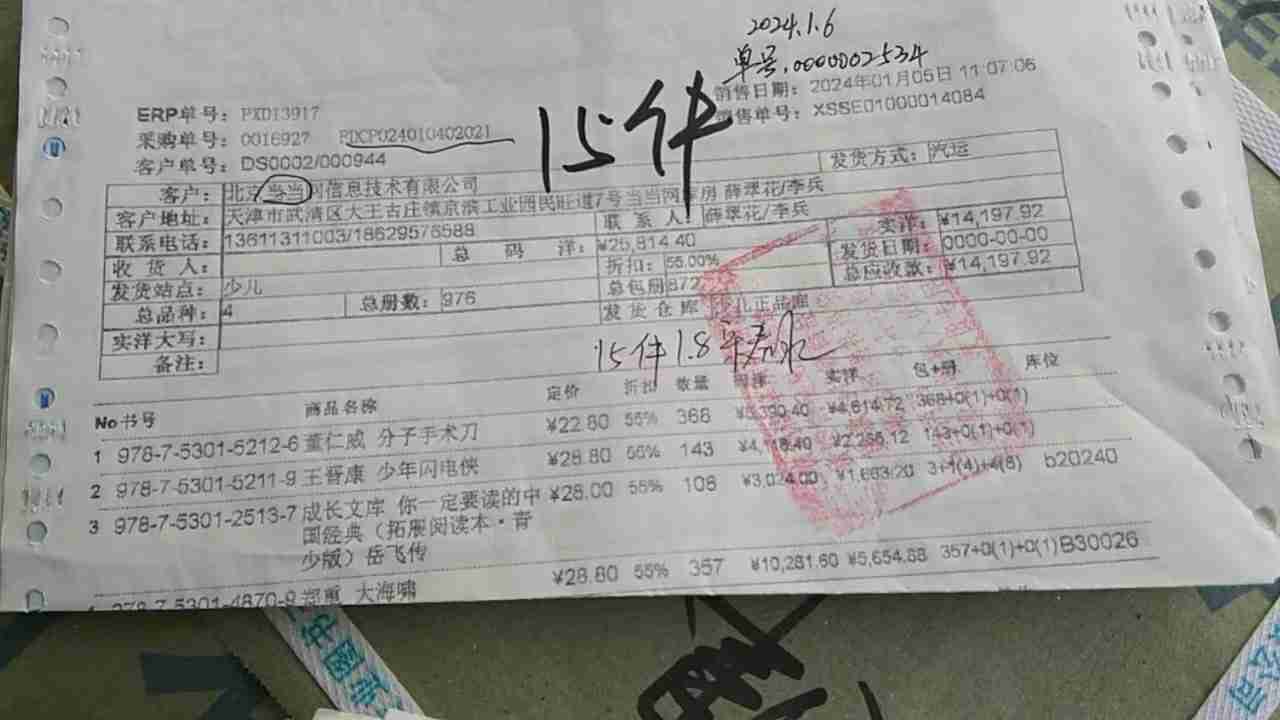 2024.1.6
单号:0000002534
ERP单号: PXD13917
销售日期: 2024年01月05日 11:07:06
采购单号: 0016927 PDCP024010402021
15件
销售单号: XSSE01000014084
客户单号: DS0002/000944
发货方式: 汽运
客户: 北京当当网信息技术有限公司
客户地址: 天津市武清区大王古庄镇京滨工业园民旺道7号当当网库房 薛翠花/李兵
联系人: 薛翠花/李兵
实洋: ¥14,197.92
联系电话: 13611311003/18629576588
总码洋: ¥25,814.40
发货日期: 0000-00-00
收货人:
折扣: 55.00%
总应收款: ¥14,197.92
发货站点: 少儿
总包册 872
总品种: 4
总册数: 976
发货仓库
实洋大写:
备注:
15件 1.8
No 书号 商品名称 定价 折扣 数量 码洋 实洋 包+册 库位
1 978-7-5301-5212-6 董仁威 分子手术刀 ¥22.80 55% 368 ¥8,390.40 ¥4,614.72 368+0(1)+0(1)
2 978-7-5301-5211-9 王晋康 少年闪电侠 ¥28.80 55% 143 ¥4,118.40 ¥2,265.12 143+0(1)+0(1)
3 978-7-5301-2513-7 成长文库 你一定要读的中 ¥28.00 55% 108 ¥3,024.00 ¥1,663.20 3+1(4)+4(8) b20240
国经典(拓展阅读本·青
少版)岳飞传
4 978-7-5301-4870-9 郑重 大海啸 ¥28.80 55% 357 ¥10,281.60 ¥5,654.88 357+0(1)+0(1) B30026